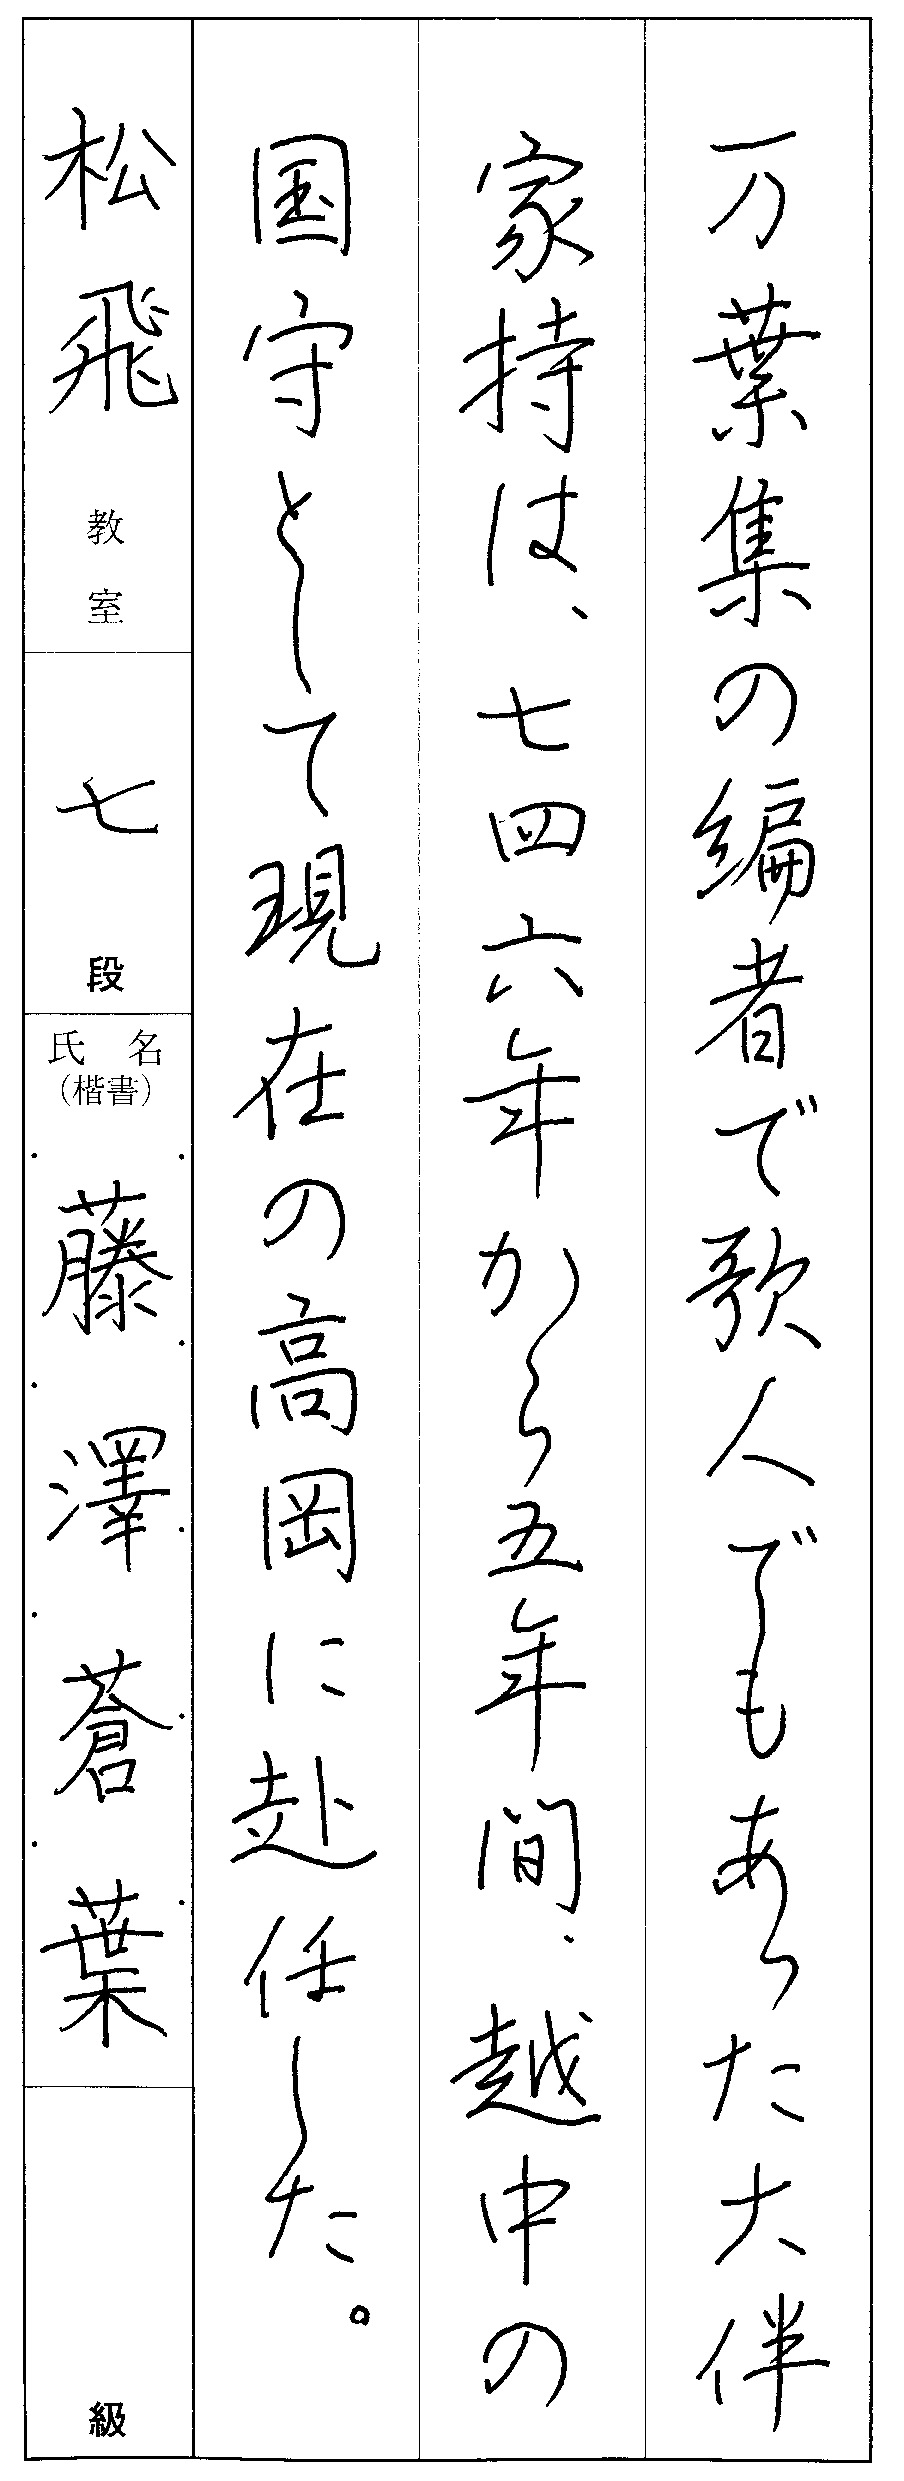 万葉集の編者で歌人でもあった大伴
家持は、七四六年から五年間、越中の
国守として現在の高岡に赴任した。
松飛教室
七段
氏名
(楷書)
藤澤蒼葉
級